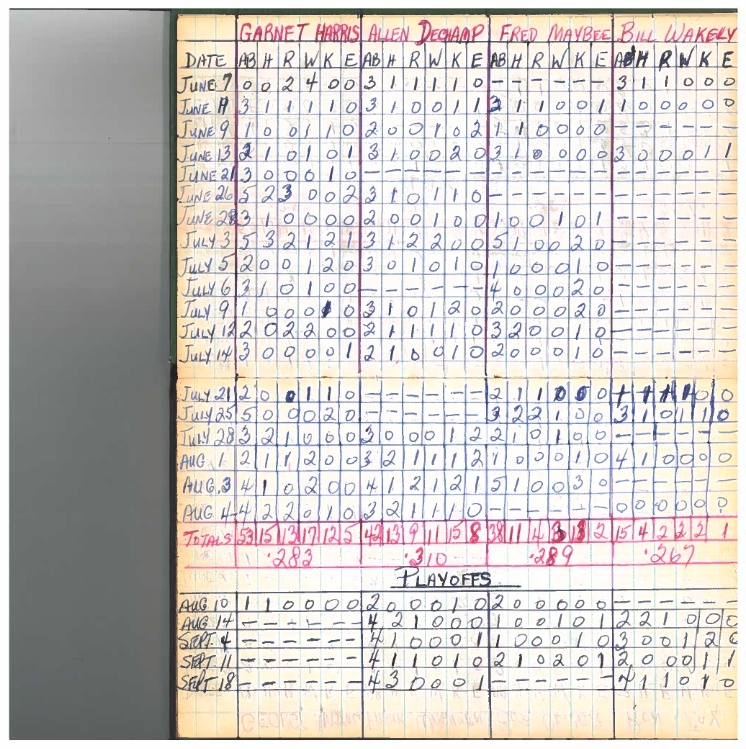 GARNET HARRIS ALLEN DECHAMP FRED MAYBEE BILL WAKELY
DATE AB H R W K E AB H R W K E AB H R W K E AB H R W K E
JUNE 7 0 0 2 4 0 0 3 1 1 1 1 0 – – – – – – 3 1 1 0 0 0
JUNE 8 3 1 1 1 1 0 3 1 0 0 1 1 2 1 1 0 0 1 1 0 0 0 0 0
JUNE 9 1 0 0 1 1 0 2 0 0 1 0 2 1 1 0 0 0 0 – – – – – –
JUNE 13 2 1 0 1 0 1 3 1 0 0 2 0 3 1 0 0 0 0 3 0 0 0 1 1
JUNE 21 3 0 0 0 1 0 – – – – – – – – – – – – – – – – – –
JUNE 26 5 2 3 0 0 2 3 1 0 1 1 0 – – – – – – – – – – – –
JUNE 28 3 1 0 0 0 0 2 0 0 1 0 0 1 0 0 1 0 1 – – – – – –
JULY 3 5 3 2 1 2 1 3 1 2 2 0 0 5 1 0 0 2 0 – – – – – –
JULY 5 2 0 0 1 2 0 3 0 1 0 1 0 1 0 0 0 1 0 – – – – – –
JULY 6 3 1 0 1 0 0 – – – – – – 4 0 0 0 2 0 – – – – – –
JULY 9 1 0 0 0 1 0 3 1 0 1 2 0 2 0 0 0 2 0 – – – – – –
JULY 12 2 0 2 2 0 0 2 1 1 1 1 0 3 2 0 0 1 0 – – – – – –
JULY 14 3 0 0 0 0 1 2 1 0 0 1 0 2 0 0 0 1 0 – – – – – –
JULY 21 2 0 0 1 1 0 – – – – – – 2 1 1 0 0 0 0 0
JULY 25 5 0 0 0 2 0 – – – – – – 3 2 2 1 0 0 3 1 0 1 1 0
JULY 28 3 2 1 0 0 0 3 0 0 0 1 2 2 1 0 1 0 0 – – – – – –
AUG 1 2 1 1 2 0 0 3 2 1 1 1 2 1 0 0 0 1 0 4 1 0 0 0 0
AUG. 3 4 1 0 2 0 0 4 1 2 1 2 1 5 1 0 0 3 0 – – – – – –
AUG 4 4 2 2 0 1 0 3 2 1 1 1 0 – – – – – – 0 0 0 0 0 0
TOTALS 53 15 13 17 12 5 42 13 9 11 15 8 38 11 4 3 13 2 15 4 2 2 2 1
.283 .310 .289 .267
PLAYOFFS
AUG 10 1 1 0 0 0 0 2 0 0 0 1 0 2 0 0 0 0 0 – – – – – –
AUG 14 – – – – – – 4 2 1 0 0 0 1 0 0 1 0 1 2 2 1 0 0 0
SEPT. 4 – – – – – – 4 1 0 0 0 1 1 0 0 0 1 0 3 0 0 1 2 0
SEPT. 11 – – – – – – 4 1 1 0 1 0 2 1 0 2 0 1 2 0 0 0 1 1
SEPT. 18 – – – – – – 4 3 0 0 0 1 – – – – – – 4 1 1 0 1 0